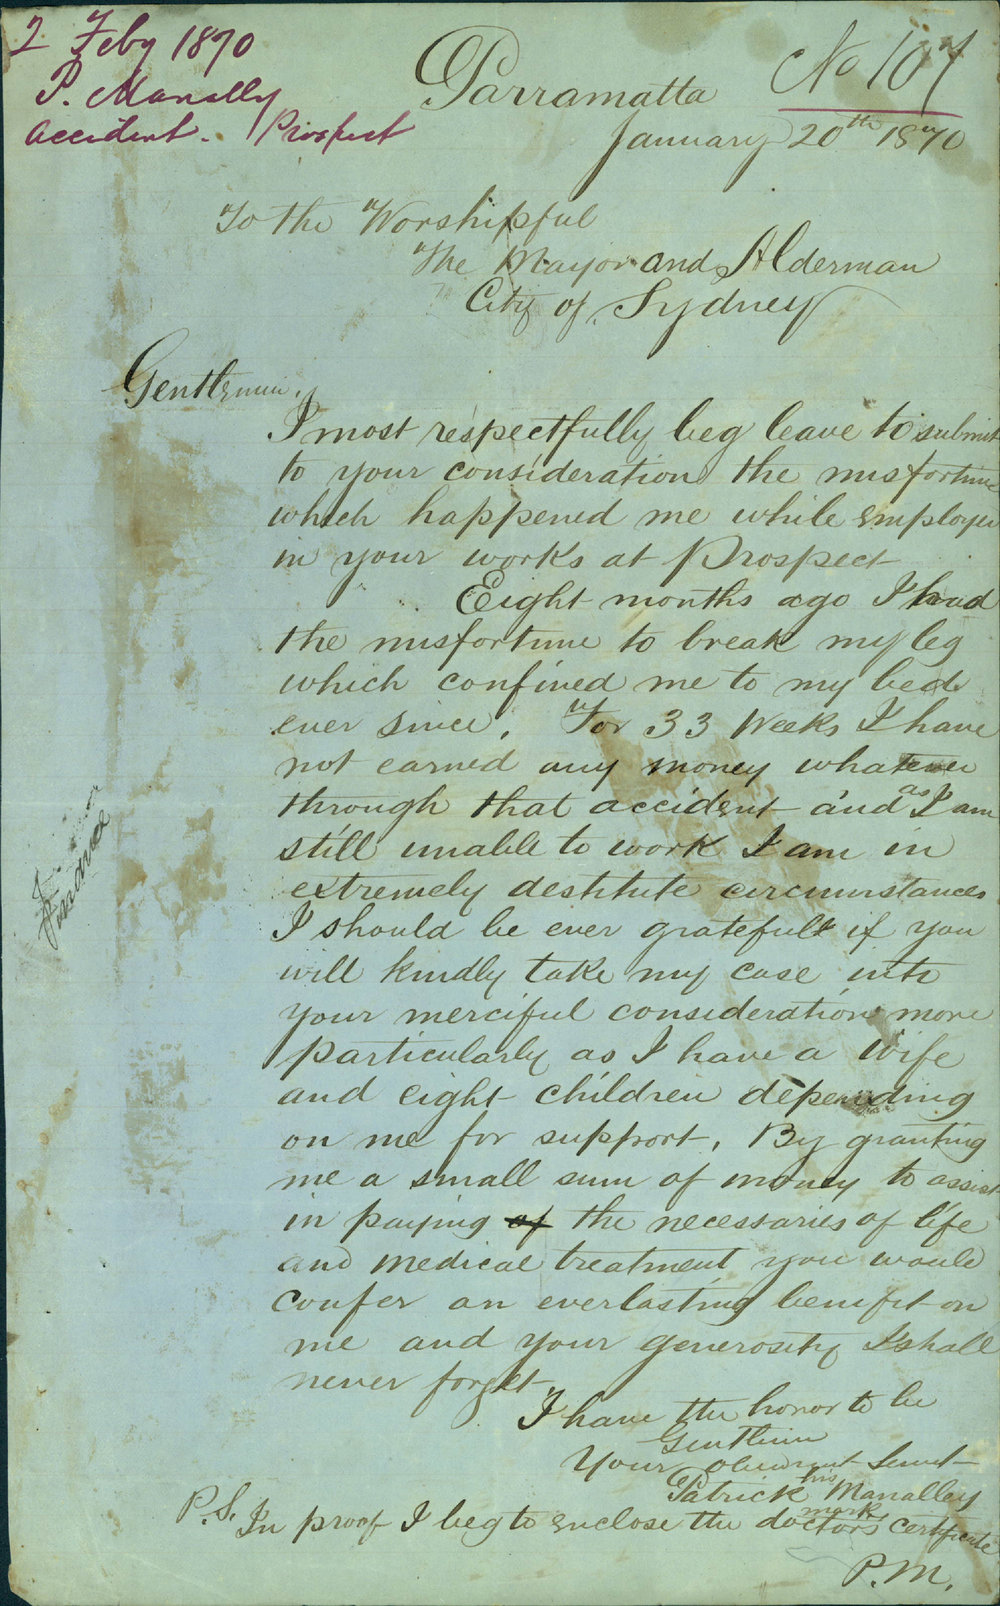 2 Feby 1870
P. Manally
accident. Prospect
No 107
Parramatta
January 20th 1870
To the Worshipful
The Mayor and Alderman
City of Sydney
Gentlemen.
I most respectfully beg leave to submit
to your consideration the misfortune
which happened me while employed
in your works at Prospect
Eight months ago I had
the misfortune to break my leg
which confined me to my bed
ever since. For 33 Weeks I have
not earned any money whatever
through that accident and as I am
still unable to work I am in
extremely destitute circumstances
I should be ever gratefull if you
will kindly take my case into
your merciful consideration more
particularly as I have a wife
and eight children depending
on me for support. By granting
me a small sum of money to assist
in paying of the necessaries of life
and medical treatment you would
confer an everlasting benefit on
me and your generosity I shall
never forget
I have the honor to be
Gentlemen
Your obedient Servt
Patrick his Manalley
mark
P.S. In proof I beg to enclose the doctors certificate
P.M.
Finance